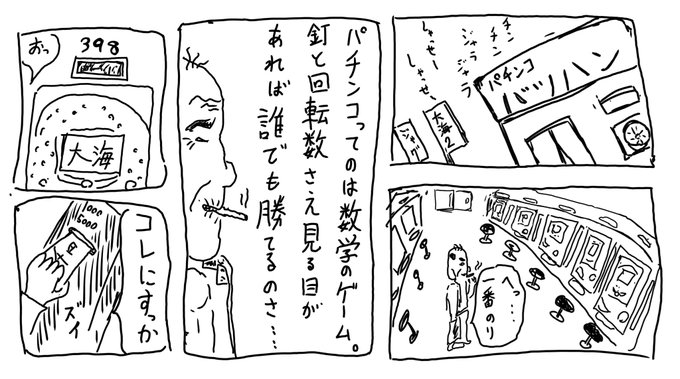 チン
チン
ジャラ
ジャラ
しゃせー
しゃせー
パチンコ
バツハン
大海2
ジャグ
へっ…
一番のり
パチンコってのは数学のゲーム。
釘と回転数さえ見る目が
あれば誰でも勝てるのさ…
398
おっ
大海
コレにすっか
1000
5000
ズイ